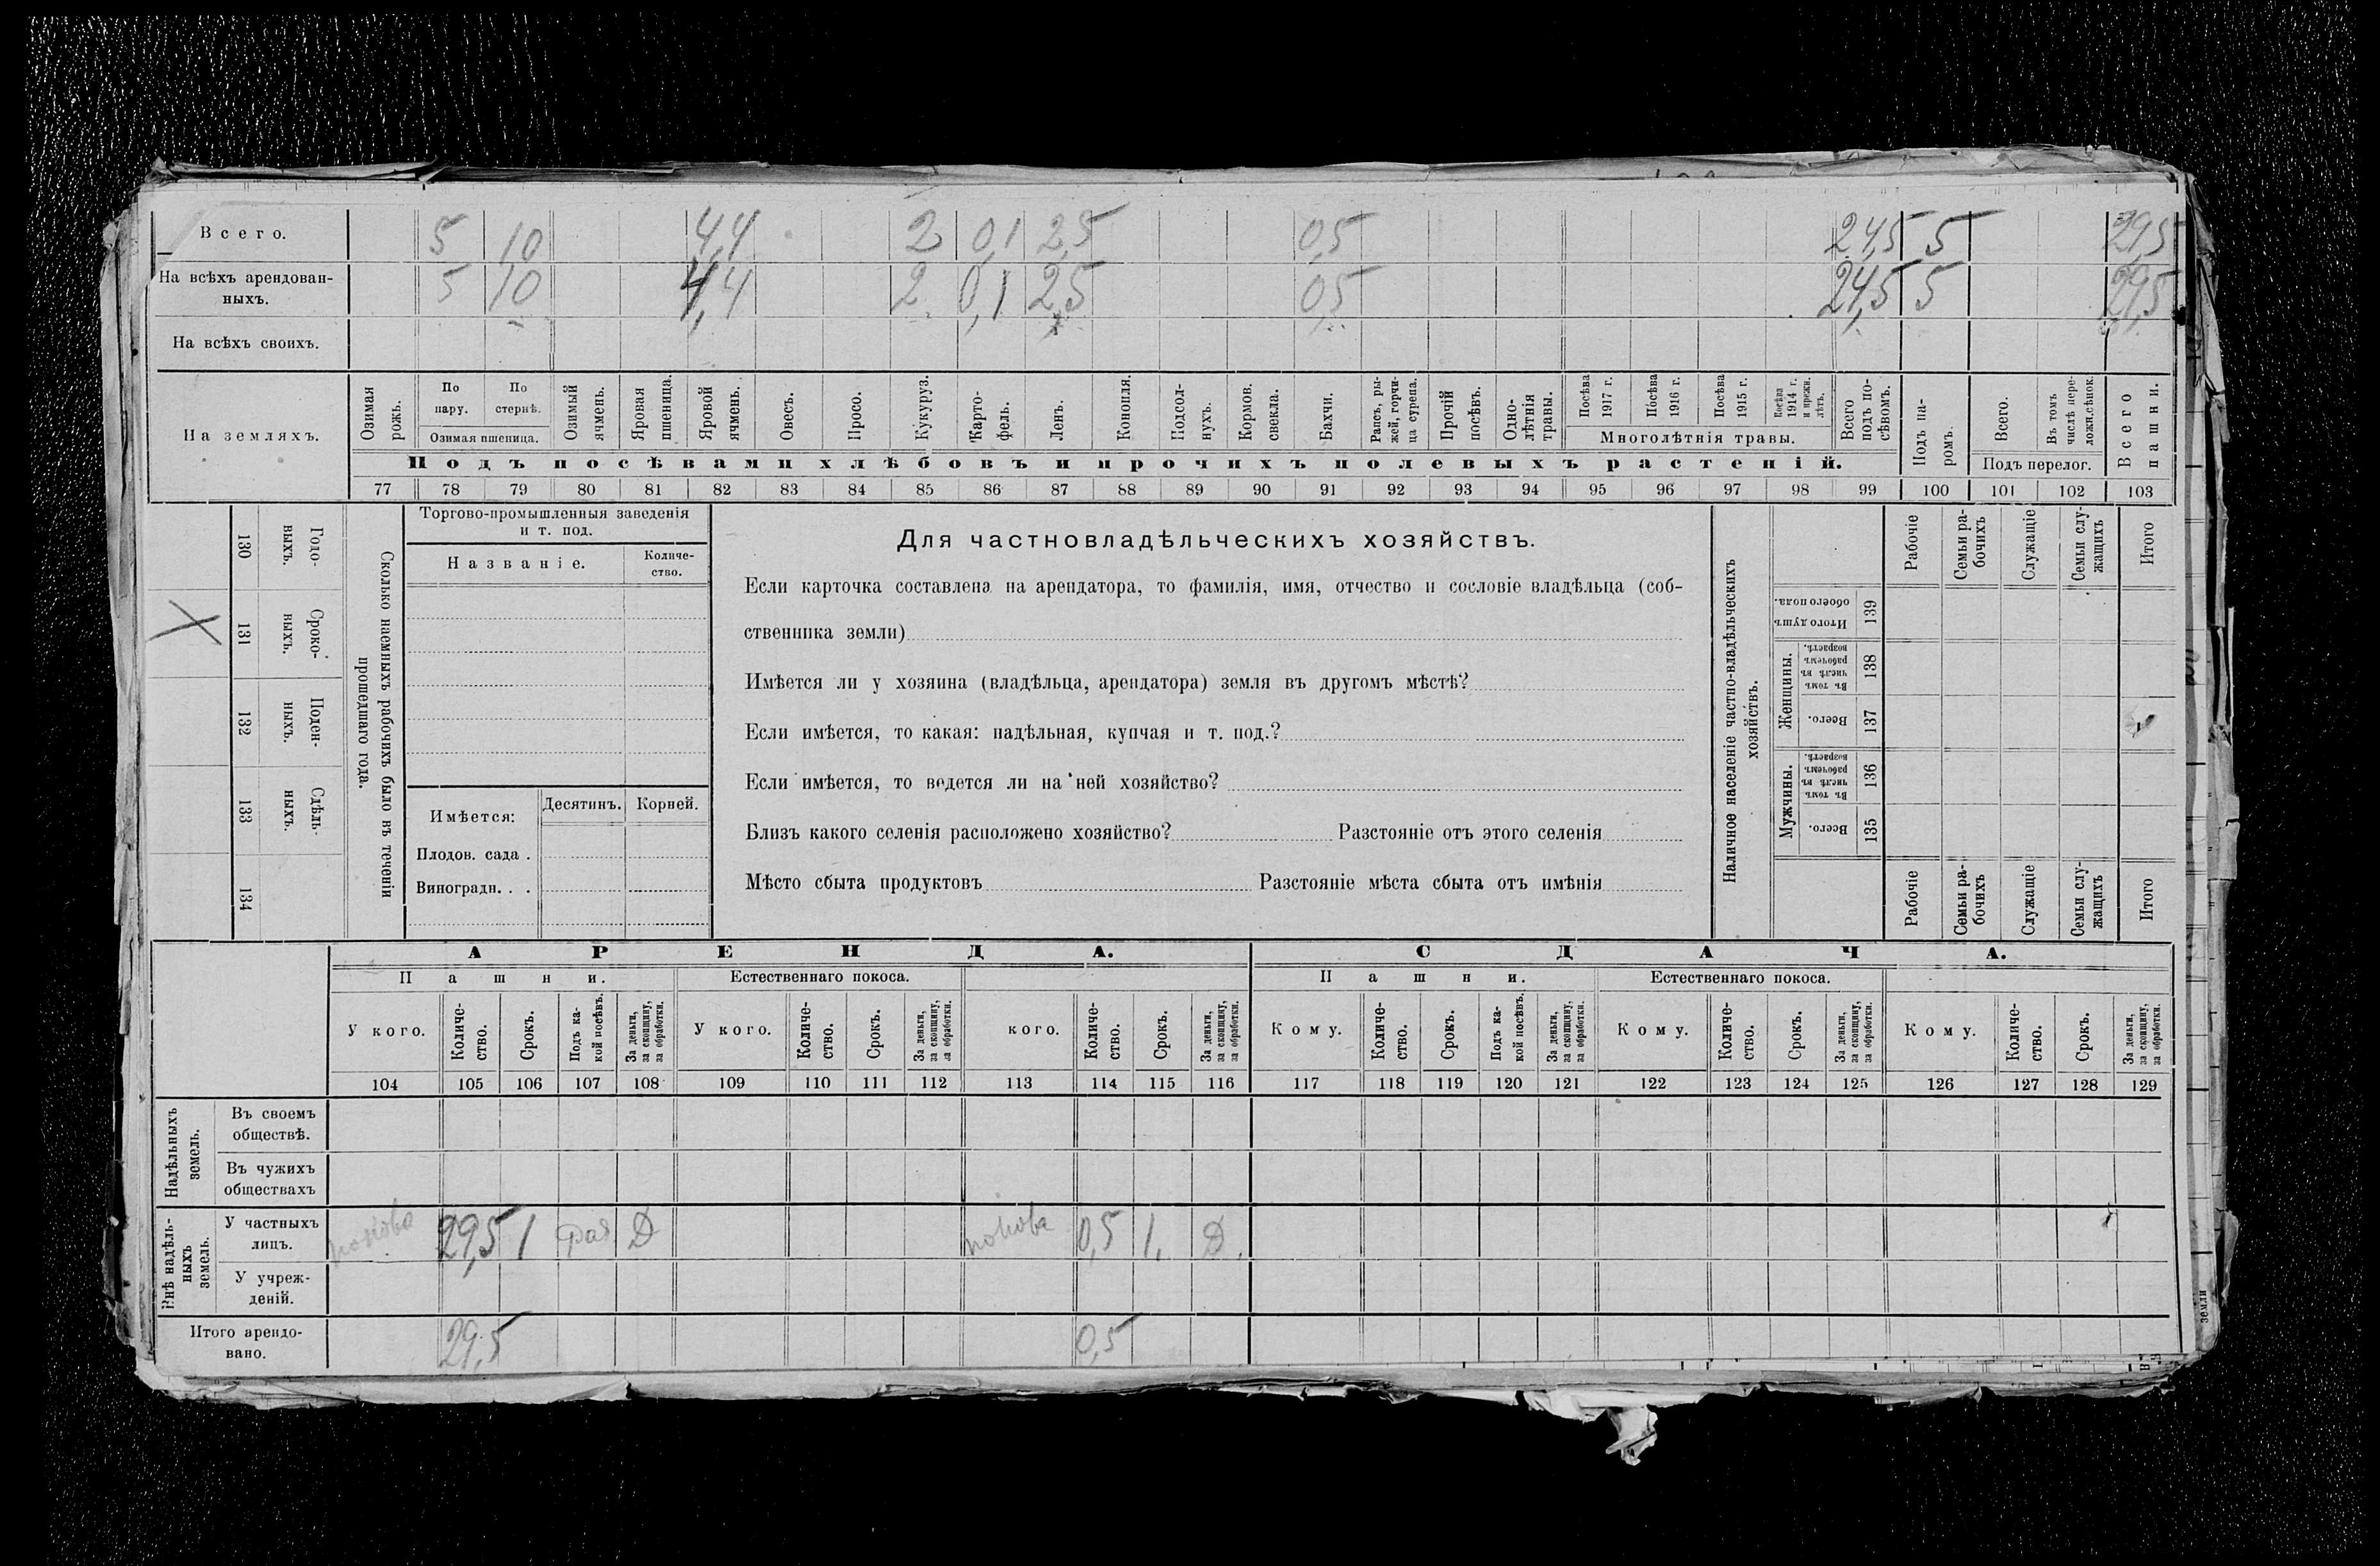 Всего. 5 10 4,4 2 0,1 2,5 0,5 24,5 5 29,5
На всѣхъ арендован-
ныхъ. 5 10 4,4 2 0,1 2,5 0,5 24,5 5 29,5
На всѣхъ своихъ.
На земляхъ.
Озимая рожь.
По пару.
По стернѣ.
Озимая пшеница.
Озимый ячмень.
Яровая пшеница.
Яровой ячмень.
Овесъ.
Просо.
Кукуруз.
Карто-
фель.
Ленъ.
Конопля.
Подсол-
нухъ.
Кормов. свекла.
Бахчи.
Рапсъ, ры-
жей, горчи-
ца сурепа.
Прочій посѣвъ.
Одно-
лѣтнія травы.
Посѣва 1917 г.
Посѣва 1916 г.
Посѣва 1915 г.
Посѣва 1914 г. и прежн. лѣтъ.
Многолѣтнія травы.
Всего подъ по-
сѣвомъ.
Подъ па-
ромъ.
Всего.
Въ томъ числѣ пере-
ложн.сѣнок.
Подъ перелог.
Всего пашни.
Подъ посѣвами хлѣбовъ и прочихъ полевыхъ растеній.
77 78 79 80 81 82 83 84 85 86 87 88 89 90 91 92 93 94 95 96 97 98 99 100 101 102 103
130 Годо-
выхъ.
131 Сроко-
ныхъ.
132 Поден-
ныхъ.
133 Сдѣль-
ныхъ.
134
Сколько наемныхъ рабочихъ было въ теченіи
прошедшаго года.
Торгово-промышленныя заведенія
и т. под.
Названіе.
Количе-
ство.
Имѣется:
Десятинъ.
Корней.
Плодов. сада .
Виноградн. . .
Для частновладѣльческихъ хозяйствъ.
Если карточка составлена на арендатора, то фамилія, имя, отчество и сословіе владѣльца (соб-
ственника земли)
Имѣется ли у хозяина (владѣльца, арендатора) земля въ другомъ мѣстѣ?
Если имѣется, то какая: надѣльная, купчая и т. под.?
Если имѣется, то ведется ли на ней хозяйство?
Близъ какого селенія расположено хозяйство? Разстояніе отъ этого селенія
Мѣсто сбыта продуктовъ Разстояніе мѣста сбыта отъ имѣнія
Наличное населеніе частно-владѣльческихъ
хозяйствъ.
Рабочіе
Семьи ра-
бочихъ
Служащіе
Семьи слу-
жащихъ
Итого
Итого душъ обоего пола. 139
Женщины.
Въ томъ числѣ въ рабочемъ возрастѣ. 138
Всего. 137
Мужчины.
Въ томъ числѣ въ рабочемъ возрастѣ. 136
Всего. 135
Рабочіе
Семьи ра-
бочихъ
Служащіе
Семьи слу-
жащихъ
Итого
АРЕНДА. СДАЧА.
Пашни. Естественнаго покоса. Пашни. Естественнаго покоса.
У кого.
Количе-
ство.
Срокъ.
Подъ ка-
кой посѣвъ.
За деньги, за скопщину, за обработки.
У кого.
Количе-
ство.
Срокъ.
За деньги, за скопщину, за обработки.
кого.
Количе-
ство.
Срокъ.
За деньги, за скопщину, за обработки.
Кому.
Количе-
ство.
Срокъ.
Подъ ка-
кой посѣвъ.
За деньги, за скопщину, за обработки.
Кому.
Количе-
ство.
Срокъ.
За деньги, за скопщину, за обработки.
Кому.
Количе-
ство.
Срокъ.
За деньги, за скопщину, за обработки.
104 105 106 107 108 109 110 111 112 113 114 115 116 117 118 119 120 121 122 123 124 125 126 127 128 129
Надѣльныхъ
земель.
Въ своемъ
обществѣ.
Въ чужихъ
обществахъ
Внѣ надѣль-
ныхъ
земель.
У частныхъ
лицъ. 29,5 1 Д 0,5 1, Д.
У учреж-
деній.
Итого арендо-
вано. 29,5 0,5
земли